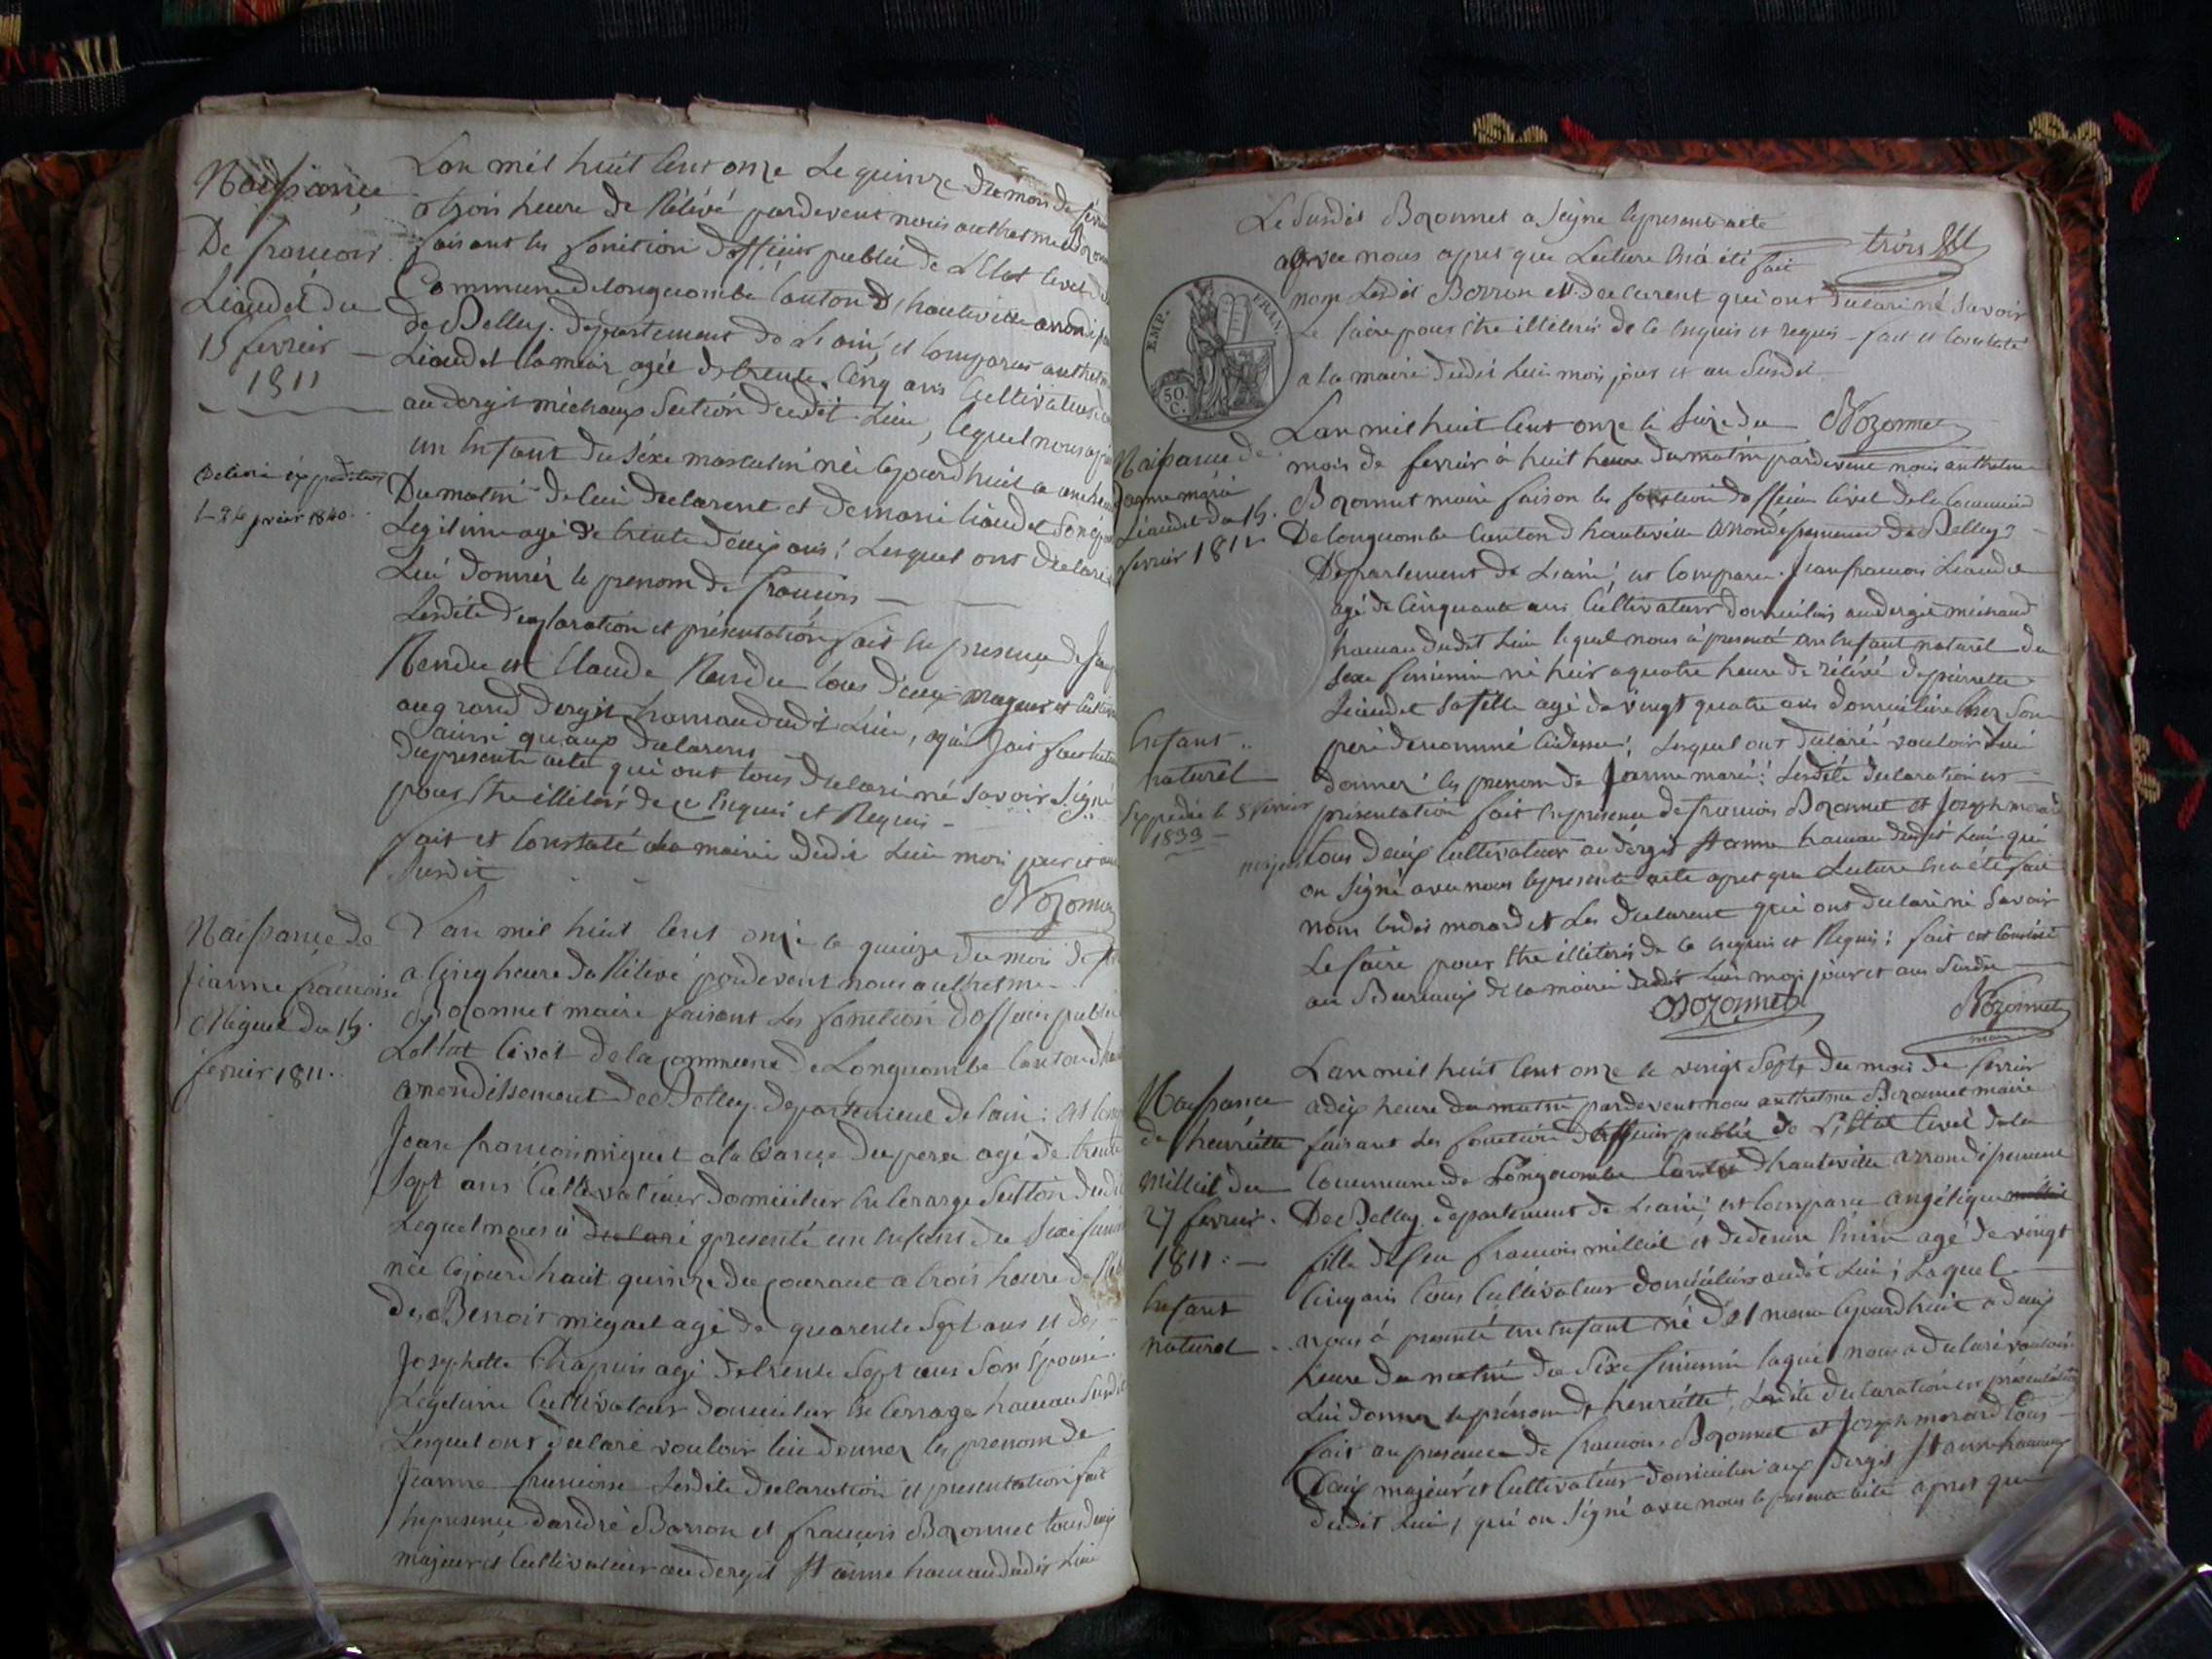 Naissance
De francois
Liaudet du
15 fevrier
1811
Lan mil huit Cent onze Le quinze du mois de fevrier
a trois heure de Rélévé pardevent nous anthelme Bozonnet
faisant les fonction dofficier public de LEtat Civil de
Commune de longecombe Canton D hauteville arrondis
de Belley. département de Lain, et Comparus anthelme
Liaudet Lameir agée de trente Cinq ans Cultivateur
au dergit michaux Section dudit Lieu, lequel nous a
un Enfant du séxe masculin née cejourdhuit a
Du matin de lui declarent et de marie liaudet son
Legitime agé de trente deux ans; Lesquel ont declaré
Lui donnér le prenom de francois
Lesdite declaration et présentation fait en présence de
Rendu et Claude Rendu tous deux majeur et Cultiv
au grand dergit hamau dudit Lieu,
Sainsi quaux declarens
du presente acte qui ont tous declaré né Savoir Signé
pour être illiteré de Ce Enquis et Requis
fait et Constaté a la mairie dudit Lieu mois jour et an
Susdit
Bozonnet
1840
Naissance de
Jeanne francoise
Miguet du 15.
fevrier 1811.
L'an mil huit Cent onze le quinze du mois de
a Cinq heure du Rélévé pardevent nous anthelme
Bozonnet maire faisant Les fonction Dofficier public
LEtat Civil de la commune de Longecombe Canton dhau
arrondissement de Belley. departement de lain: est Com
Jean francois miguet a la place du pere agé de trente
Sept ans Cultivateur domicilier En Cerarge Section dudit
Lequel nous à declaré presenté un enfant du Sexe femin
née Cejourdhuit quinze du courant a trois heure de Rél
de Benoit miguet agé de quarente Sept ans et de
Josephette Chapuis agé de trente Sept ans Son Epouse
Legitime Cultivateur domicilier En Cerrage hamau Susdit
Lesquel ont declaré vouloir lui donner les prenom de
Jeanne francoise Lesdite declaration et presentation fait
En presence dandré Borron et francois Bozonnet tous deux
majeur et Cultivateur au dergit St anne hamau dudit Lieu
Le Susdit Bozonnet a Seigné le present acte
avec nous apres que Lecture En a été fait
non Ledit Borron et declarent qui ont declaré né Savoir
Le faire pour être illiterés de Ce Enquis et requis - fait et Constaté
a la mairie dudit Lieu mois jour et an Susdit
Bozonnet
EMP. FRAN.
50
C.
Naissance de
Jeanne marie
Liaudet du 15.
fevrier 1811
Enfant
naturel
Expedié le 8 fevrier
1833
Lan mil huit Cent onze le Seize du
mois de fevrier à huit heure du matin pardevent nous anthelme
Bozonnet maire faison les fonction dofficier Civil de la Commune
De longecombe Canton dhauteville arrondissement de Belley
Departement de Lain; est Comparu Jean francois Liaudet
agé de Cinquante ans Cultivateur domicilier au dergit michaud
hamau dudit Lieu lequel nous à presenté un Enfant naturel du
Sexe feminin né hier a quatre heure de rélévé de pierrette
Liaudet Sa fille agé de vingt quatre ans domicilier chez Son
pere denommé Cidessus; Lesquel ont declaré vouloir Lui
donner les prenom de Jeanne marie; Lesdite declaration et
présentation fait En presence de francois Bozonnet et Joseph morard
majeur tous deux Cultivateur au dergit St anne hamau dudit Lieu qui
on Signé avec nous le presente acte apres que Lecture En a été fait
non Ledit morard et Les declarent qui ont declaré né Savoir
Le faire pour être illiterés de Ce Enquis et Requis; fait et Constaté
au Bureaux de la mairie dudit Lieu mois jour et an Susdit
Bozonnet
Bozonnet
maire
Naissance
de henriette
Milliet du
27 fevrier
1811:
Enfant
naturel
Lan mil huit Cent onze le vingt Sept du mois de fevrier
a dix heure du matin pardevent nous anthelme Bozonnet maire
faisant Les fonction dofficier public de L'Etat Civil de la
Commune de Longecombe Canton dhauteville arrondissement
De Belley. departement de Lain; est Comparue angélique milliet
fille de feu francois milliet et de denise agé de vingt
Cinq ans tous Cultivateur domicilier audit Lieu; Laquel
nous à presenté un Enfant né D'El meme Cejourdhuit a deux
heure du matin du Séxe feminin laquel nous a declaré vouloir
Lui donner le prénom de henriette, Lesdite declaration et présentation
fait au presence de francois Bozonnet et Joseph morard tous
Deux majeur et Cultivateur domicilier aux dergit St anne hamaux
dudit Lieu, qui on Signé avec nous le presente acte apres que